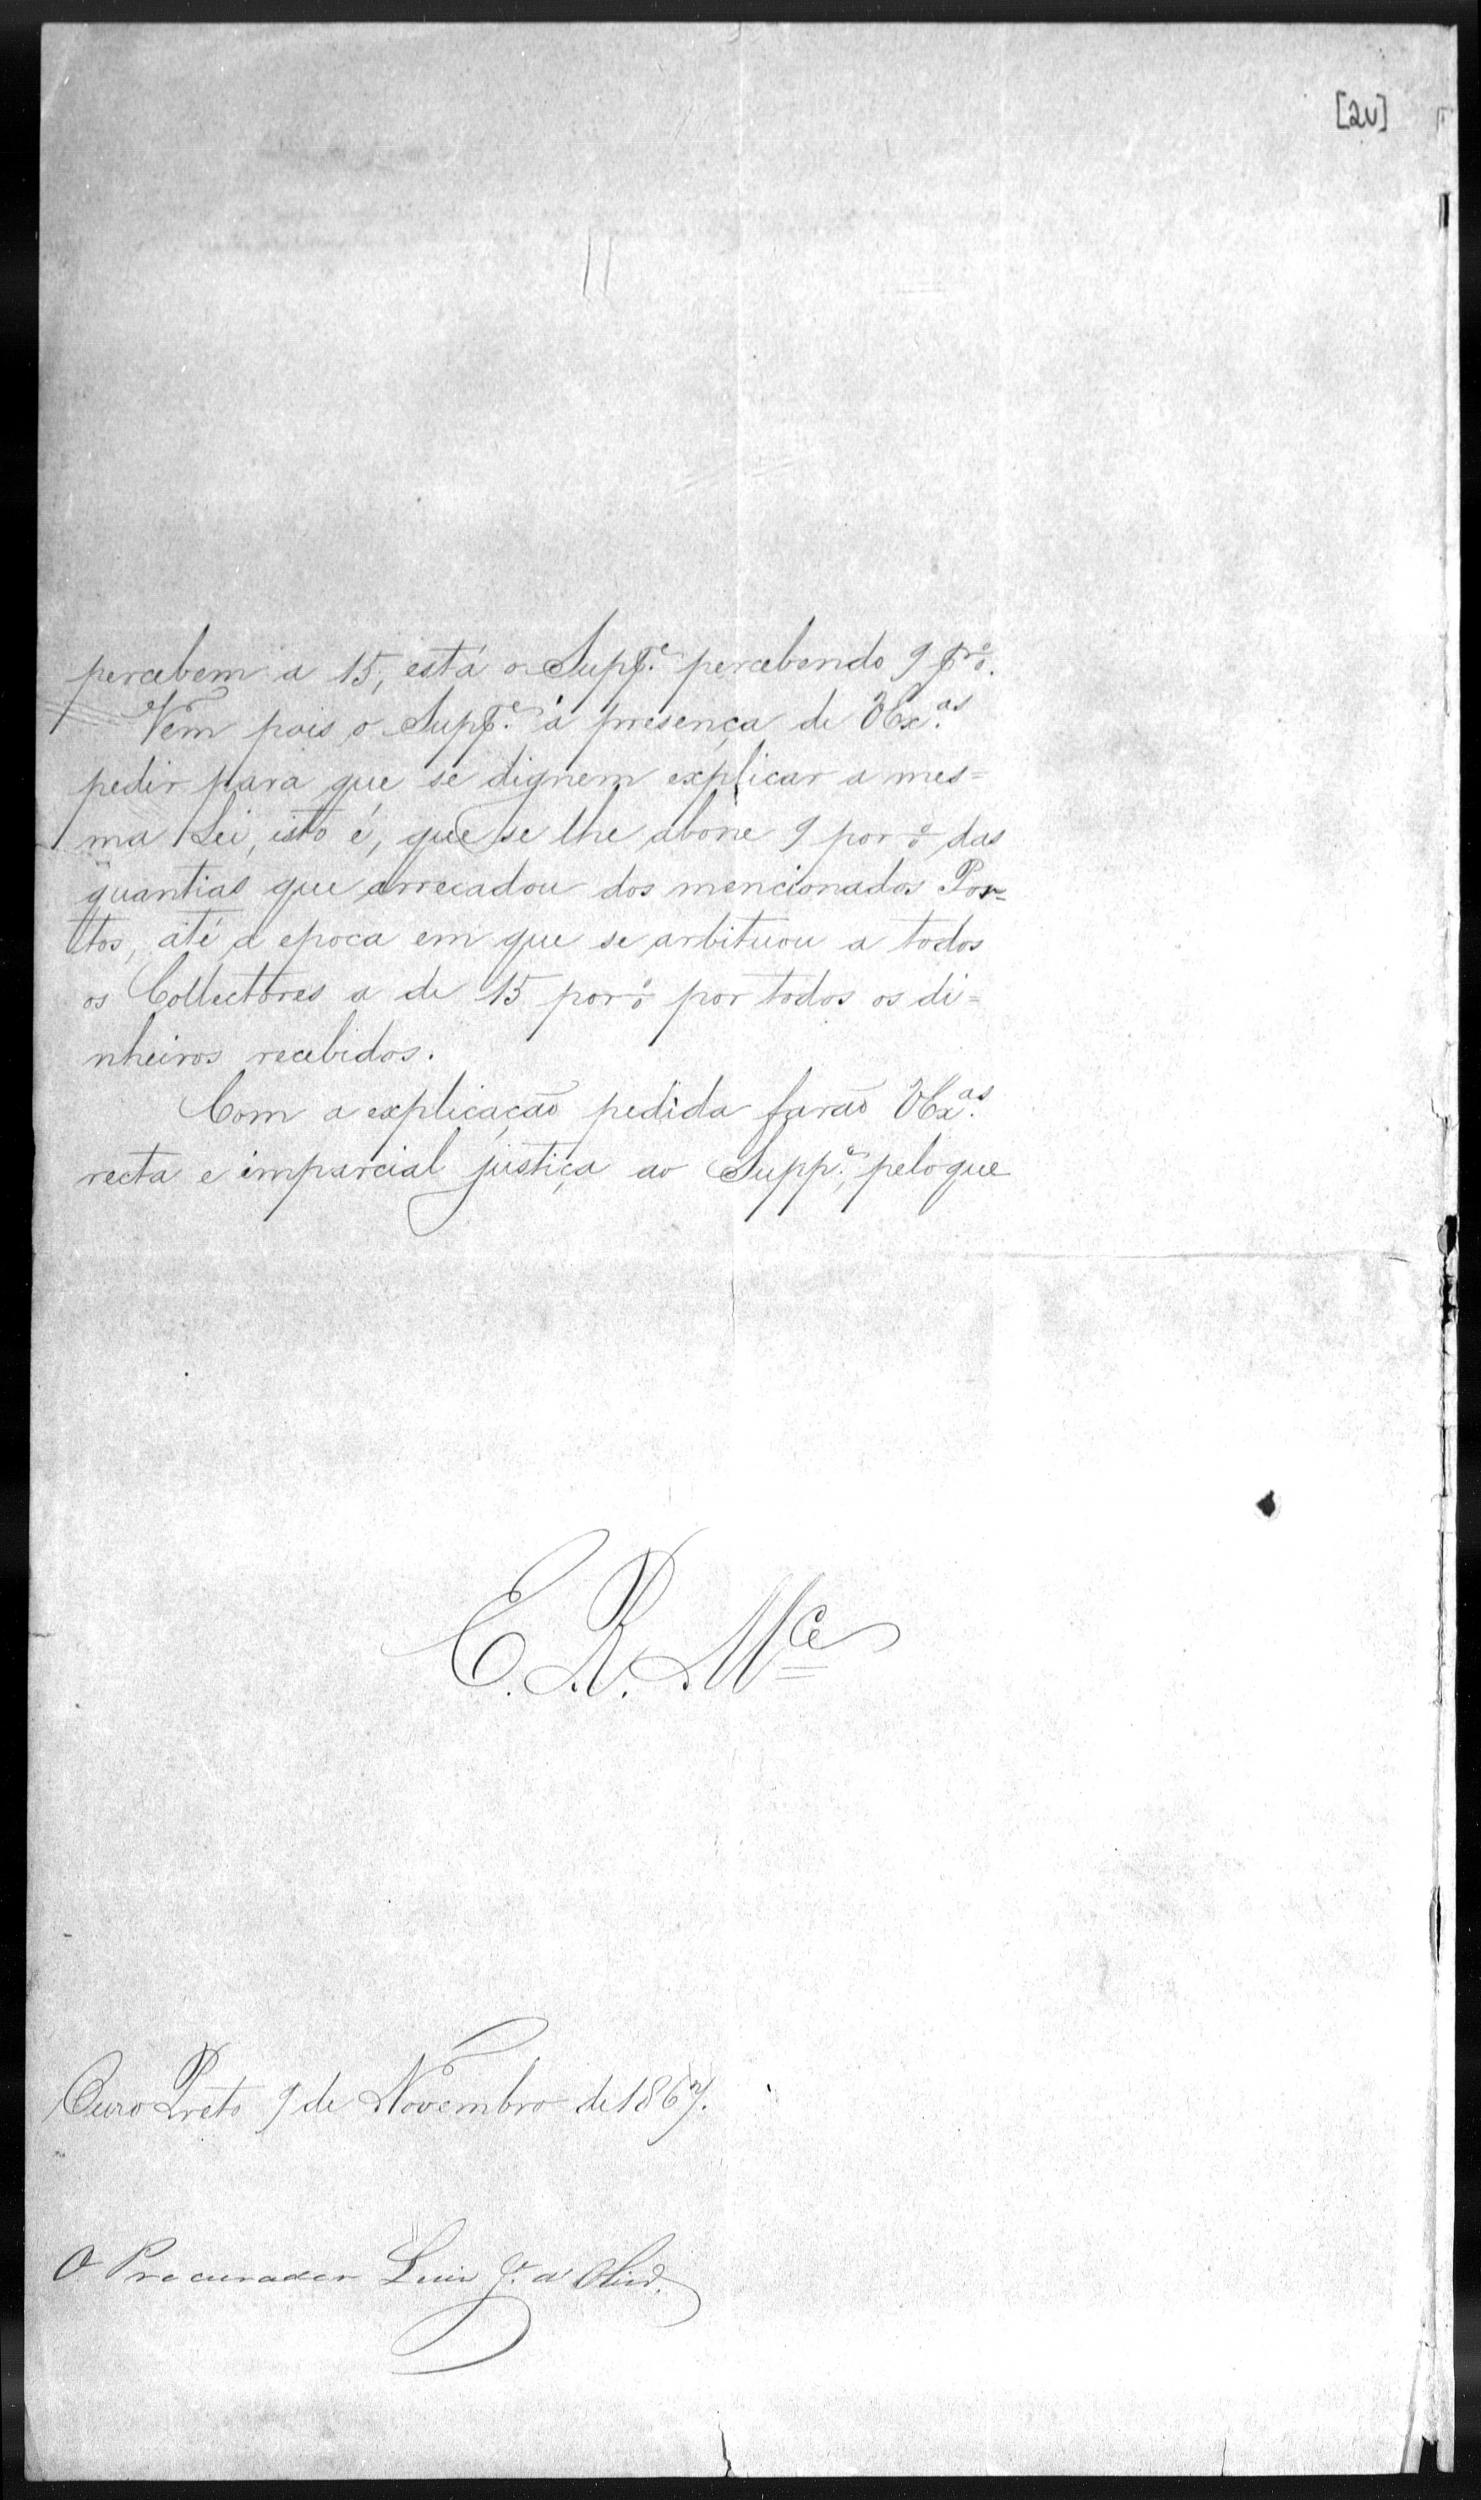 [2v]
percebem a 15, está o Supp.e percebendo 9 pr%.
Vem pois o Supp.e á presença de VEx.as
pedir para que se dignem explicar a mes=
ma Lei, isto é, que se lhe abone 9 por % das
quantias que arrecadou dos mencionados Por=
tos, até a epoca em que se arbituou a todos
os Collectores a de 15 por % por todos os di=
nheiros recebidos.
Com a explicação pedida farão VEx.as
recta e imparcial justiça ao Supp.e, pelo que
E. R. M.ce
Ouro Preto 9 de Novembro de 1867.
O Procurador Luiz J. d' Oliv.